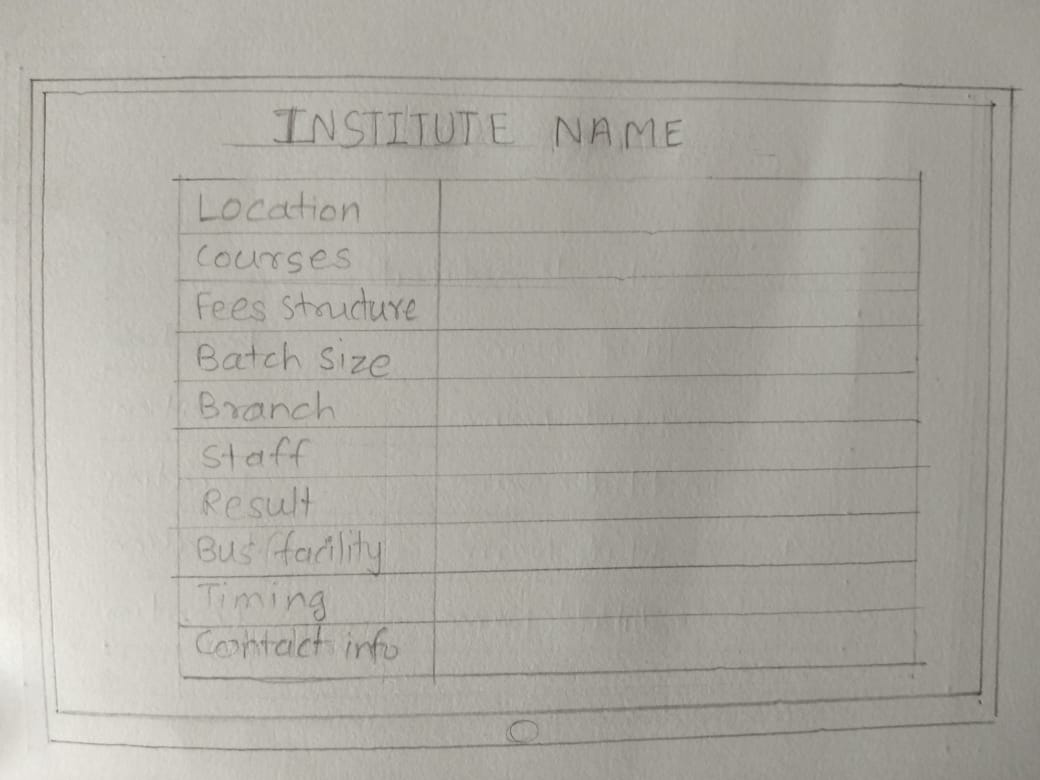 INSTITUTE NAME
Location
Courses
Fees structure
Batch size
Branch
Staff
Result
Bus facility
Timing
Contact info